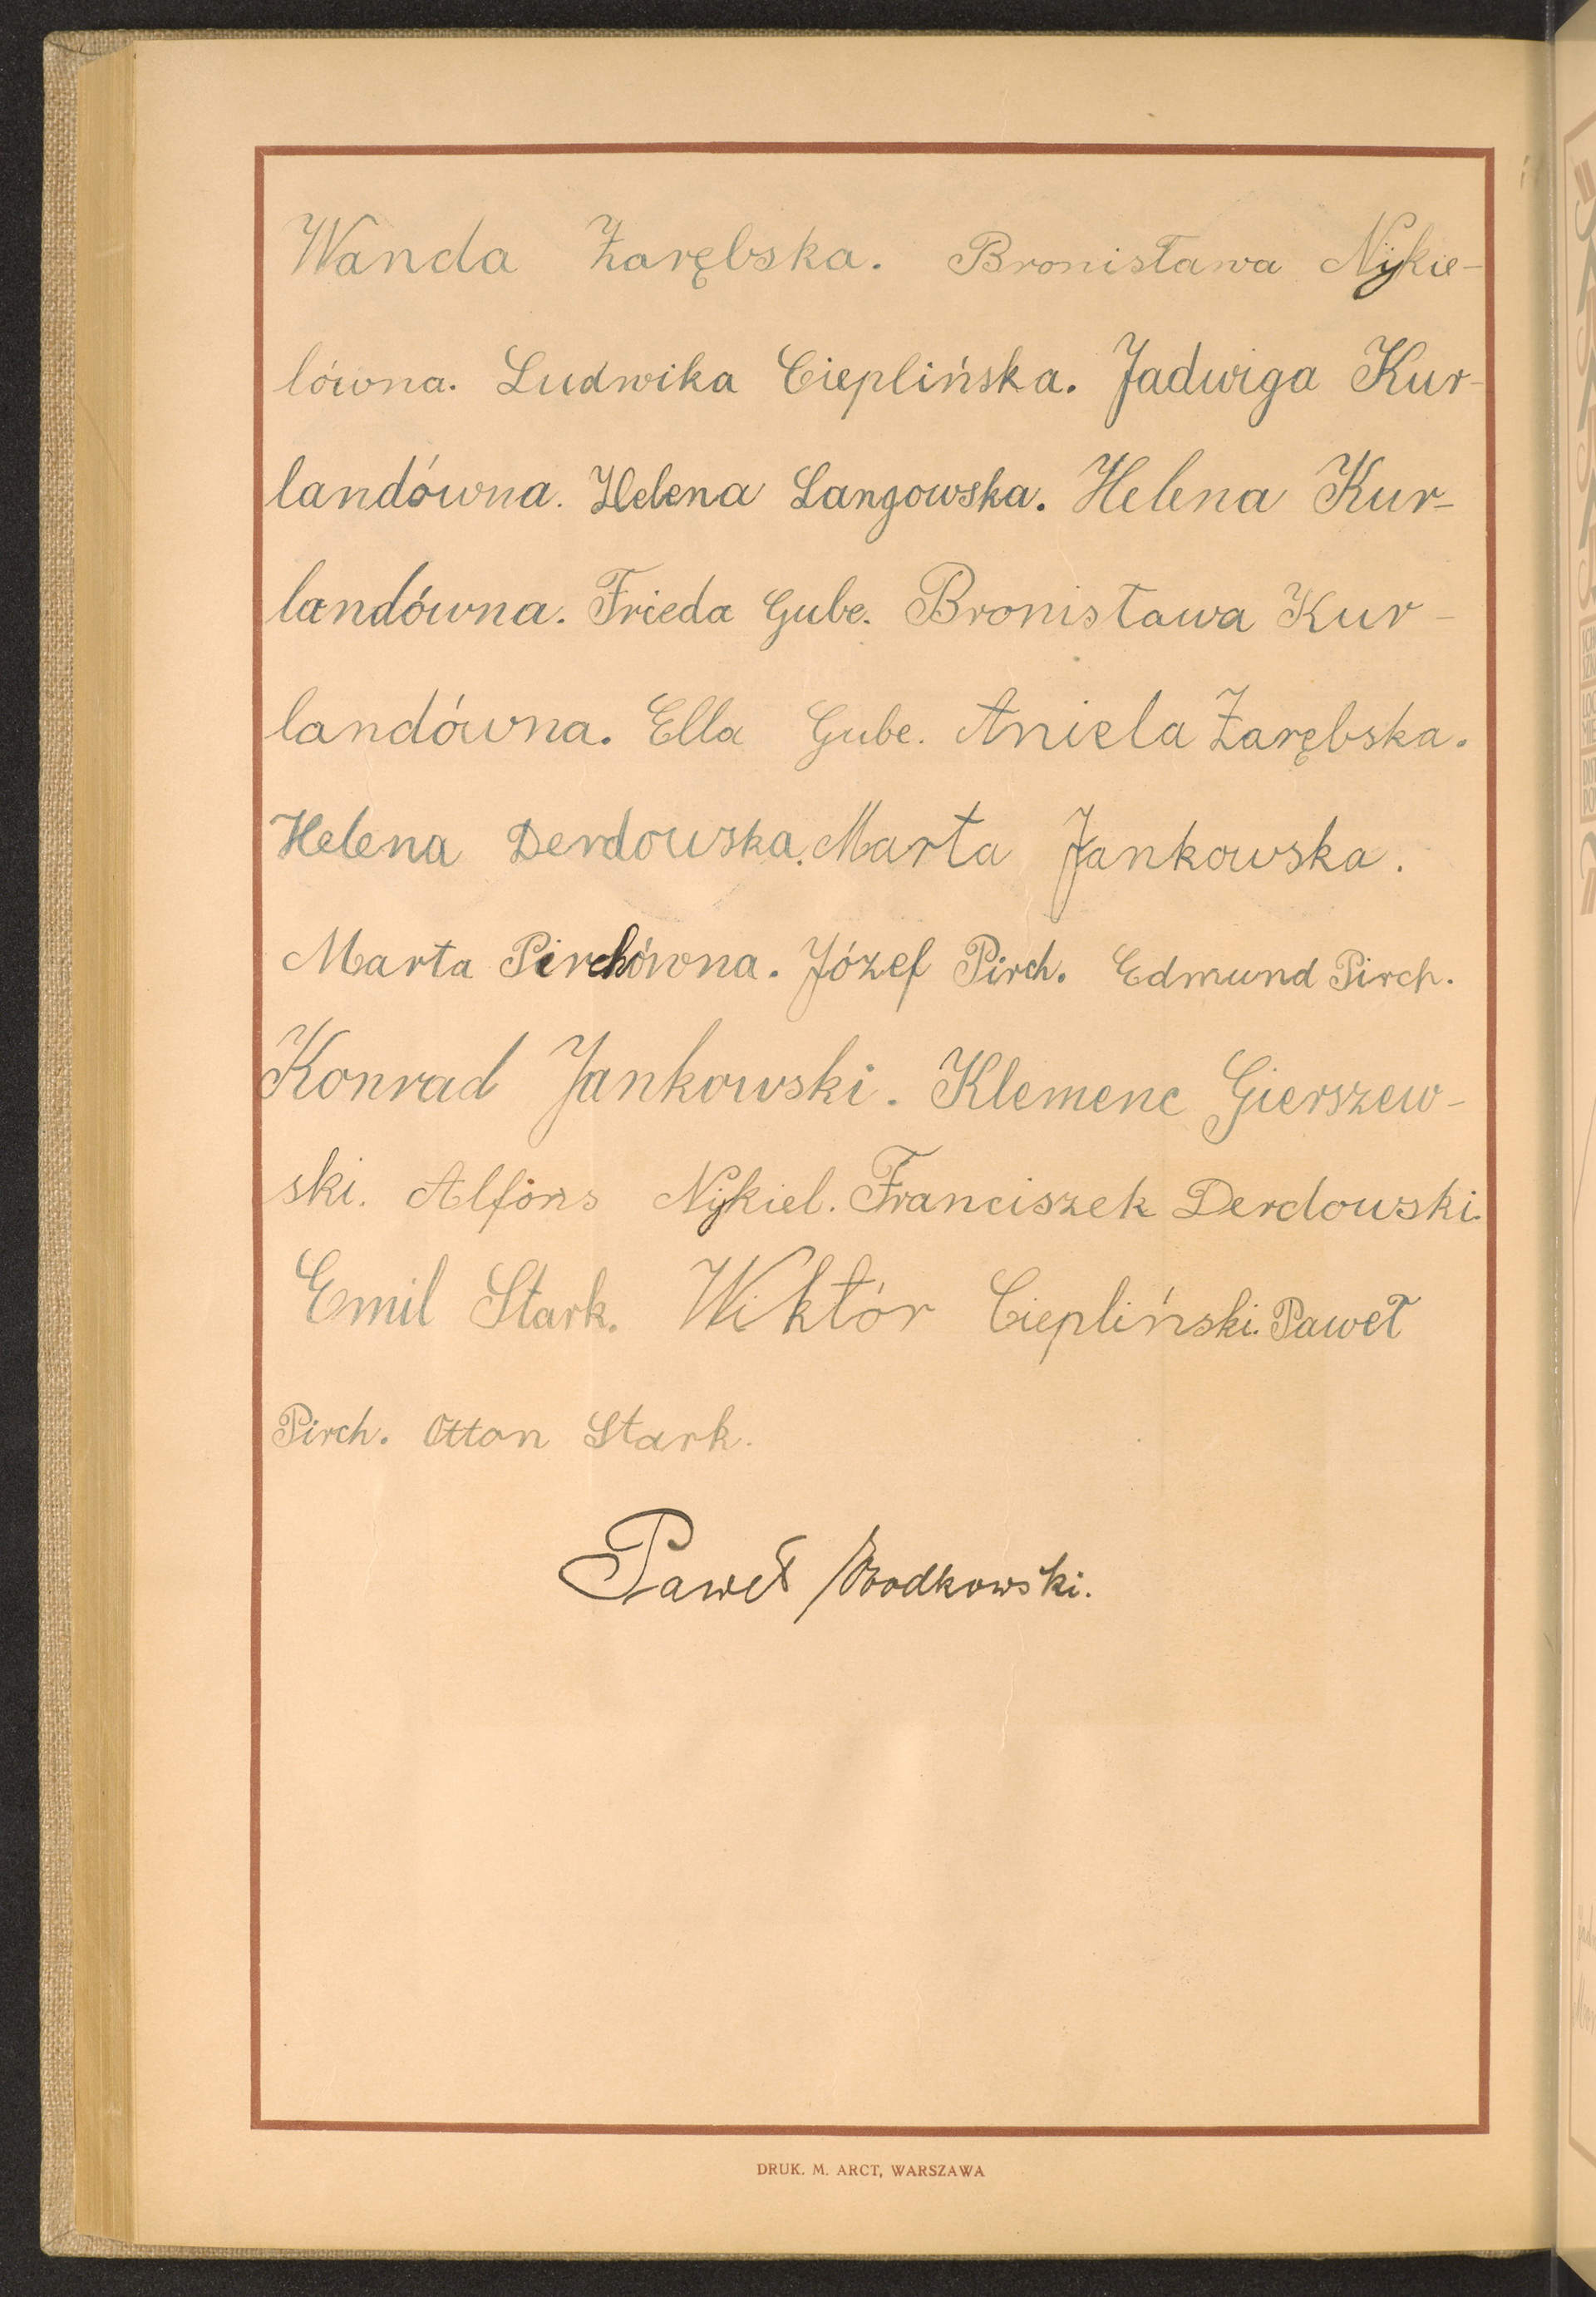 Wanda Zarębska. Bronisława Nykie-
lówna. Ludwika Cieplińska. Jadwiga Kur-
landówna. Helena Langowska. Helena Kur-
landówna. Frieda Gube. Bronisława Kur-
landówna. Ella Gube. Aniela Zarębska.
Helena Derdowska. Marta Jankowska.
Marta Pirchówna. Józef Pirch. Edmund Pirch.
Konrad Jankowski. Klemenc Gierszew-
ski. Alfons Nykiel. Franciszek Derdowski.
Emil Stark. Wiktór Ciepliński. Paweł
Pirch. Otton Stark.
Paweł
DRUK. M. ARCT, WARSZAWA